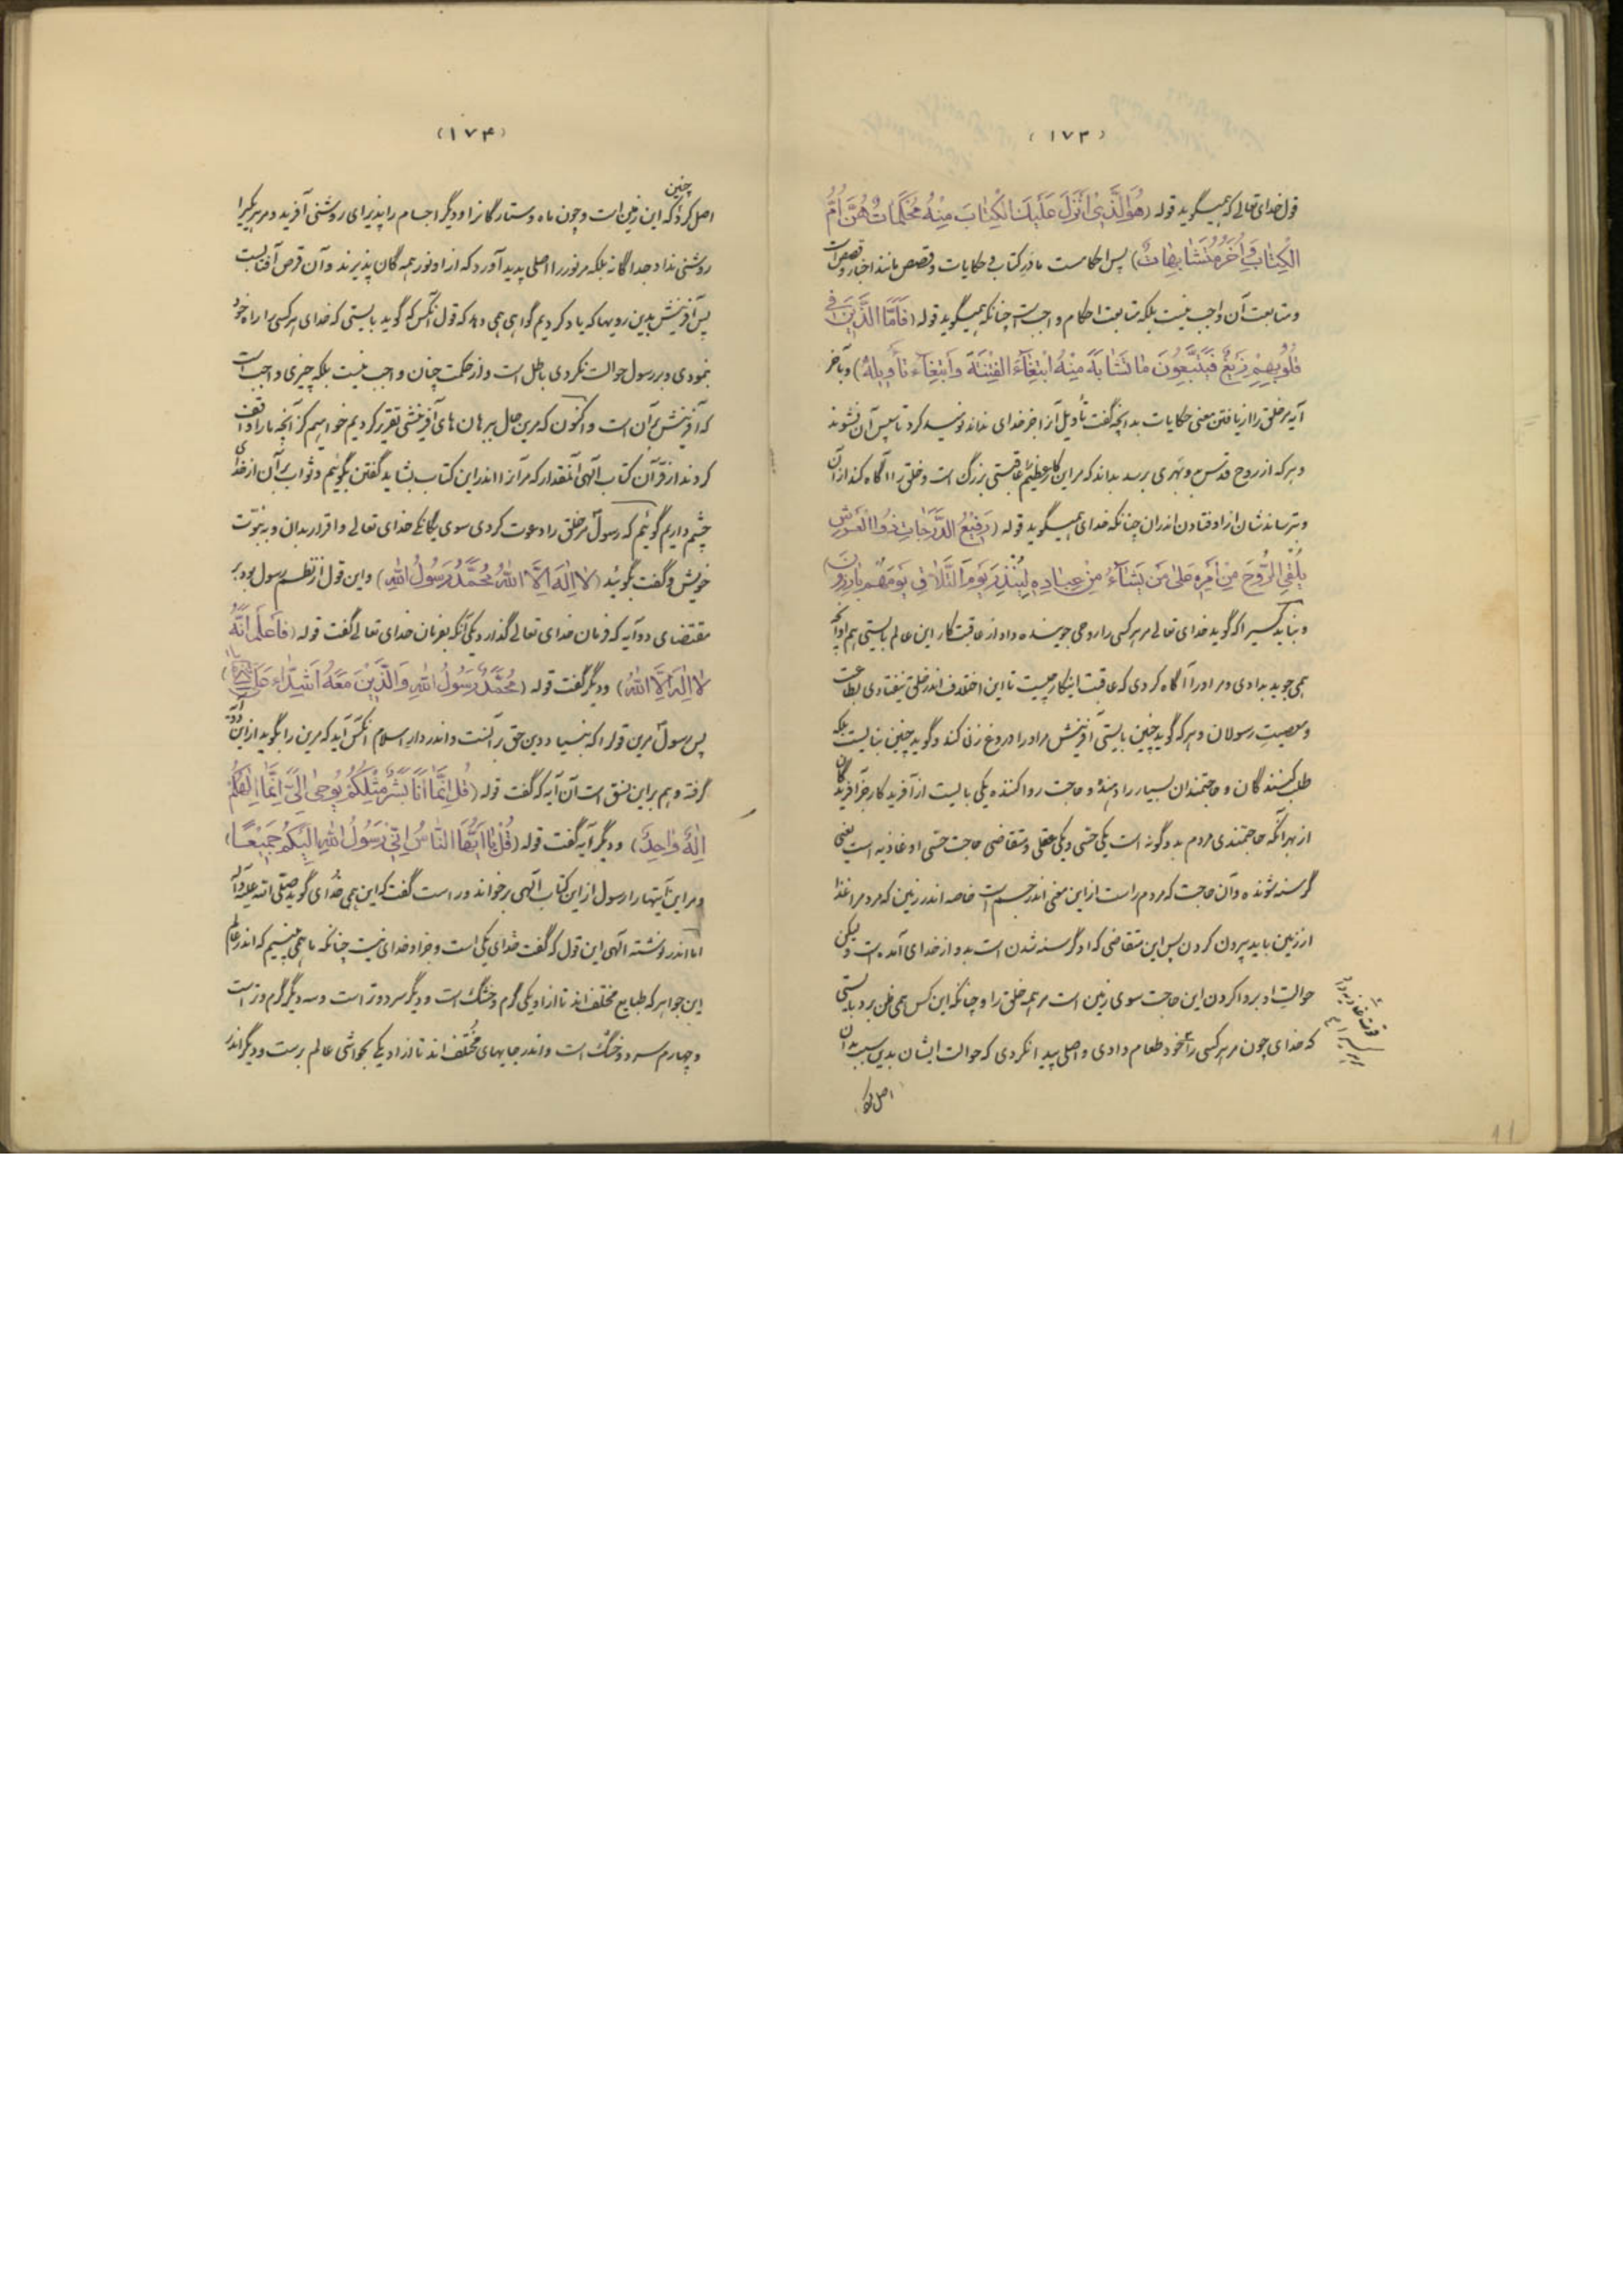 (۱۷۳)
قول خدای تعالی که همیگوید قوله (هُوَ الَّذِی اَنْزَلَ عَلَیْكَ الْكِتٰابَ مِنْهُ مُحْكَمٰاتٌ هُنَّ اُمُّ
الْكِتٰابِ وَ اُخَرُ مُتَشٰابِهٰاتٌ) پس احکامست مادر کتاب و حکایات و قصص مانند اخبار و قصص است
و متابعت آن واجب نیست بلکه متابعت احکام واجب است چنانکه همیگوید قوله (فَاَمَّا الَّذِیْنَ فِی
قُلُوْبِهِمْ زَیْغٌ فَیَتَّبِعُوْنَ مٰا تَشٰابَهَ مِنْهُ ابْتِغٰآءَ الْفِتْنَةِ وَ ابْتِغٰآءَ تَاْوِیْلِهٖ) و بآخر
آیه مر خلق را از یافتن معنی حکایات بدانچه گفت تأویل آنرا جز خدای نداند نومید کرد تا سپس آن نشوند
و هر که از روح قدس و بهری برسد بداند که مر این کار عظیم را عاقبتی بزرگ است و خلق را آگاه کند از آن
و بترساندشان از اوفتادن اندران چنانکه خدای همیگوید قوله (رَفِیْعُ الدَّرَجٰاتِ ذُوا الْعَرْشِ
یُلْقِی الرُّوْحَ مِنْ اَمْرِهٖ عَلٰی مَنْ یَشٰآءُ مِنْ عِبٰادِهٖ لِیُنْذِرَ یَوْمَ التَّلٰاقِ یَوْمَ هُمْ بٰارِزُوْنَ)
و نباید کسیرا که گوید خدای تعالی مر هر کسی را روحی جوینده داد از عاقبت کار این عالم بایستی هم او آنچه
همی جوید بدادی و مر او را آگاه کردی که عاقبت اینکار چیست تا این اختلاف اندر خلق نیفتادی بطاعت
و معصیت رسولان و هر که گوید چنین بایستی آفرینش مر او را دروغ زن کند و گوید چنین نبایست بلکه
طلب کنندگان و حاجتمندان بسیار را دهنده و حاجت روا کننده یکی بایست از آفریدگار جز آفریدگان
از بهر آنکه حاجتمندی مردم بدو گونه است یکی حسی و یکی عقلی و متقاضی حاجت حسی او غاذیه است یعنی
گرسنه شونده و آن حاجت که مردم راست از این معنی اندر جسم است خاصه اندر زمین که مردم مر غذا
از زمین باید بیرون کردن پس این متقاضی که او گرسنه شدن است بدو از خدای آمده است ولیکن
حوالت او بروا کردن این حاجت سوی زمین است مر همه خلق را و چنانکه این کس همی ظن برد بایستی
که خدای چون مر هر کسی را خود طعام دادی و اصلی پیدا نکردی که حوالت ایشان بدین سبب بدان
اصل کرد
(۱۷۴)
چنین
اصل کرد که این زمین است و چون ماه و ستارگانرا و دیگر اجسام را پذیرای روشنی آفرید و مر هر یکیرا
روشنی نداد جداگانه بلکه مر نور را اصلی پدید آورد که از او نور همه گان پذیرند و آن قرص آفتابست
پس آفرینش بدین رویها که یاد کردیم گواهی همی دهد که قول آنکس که گوید بایستی که خدای هر کسی را راه خود
بنمودی و بر رسول حوالت نکردی باطل است و از حکمت چنان واجب نیست بلکه چیزی واجب است
که آفرینش بر آن است و اکنون که مر این حال ببرهان های آفرینشی تقریر کردیم خواهیم کز آنچه ما را واقف
کردند از قرآن کتاب الهی آنمقدار که مر آنرا اندر این کتاب بشاید گفتن بگوئیم و ثواب بر آن از خدای
چشم داریم گوئیم که رسول مر خلق را دعوت کردی سوی یگانگی خدای تعالی و اقرار بدان و به نبوّت
خویش و گفت بگوئید (لٰا اِلٰهَ اِلَّا اللّٰهُ مُحَمَّدٌ رَسُوْلُ اللّٰهِ) و این قول از نظم رسول بود بر
مقتضای دو آیه که فرمان خدای تعالی گذارد یکی آنکه بفرمان خدای تعالی گفت قوله (فَاعْلَمْ اَنَّهُ
لٰا اِلٰهَ اِلَّا اللّٰهُ) و دیگر گفت قوله (مُحَمَّدٌ رَسُوْلُ اللّٰهِ وَ الَّذِیْنَ مَعَهُ اَشِدّٰاءُ عَلَی
پس رسول مر این قول را که بنیاد دین حق بر آنست و اندر دار اسلام آنکس آید که مر این را بگوید از این دو آیه
گرفته و هم بر این نسق است آن آیه که گفت قوله (قُلْ اِنَّمٰا اَنَا بَشَرٌ مِثْلُكُمْ یُوْحٰی اِلَیَّ اَنَّمٰا اِلٰهُكُمْ
اِلٰهٌ وٰاحِدٌ) و دیگر آیه گفت قوله (قُلْ یٰا اَیُّهَا النّٰاسُ اِنِّیْ رَسُوْلُ اللّٰهِ اِلَیْكُمْ جَمِیْعًا)
و مر این آیتها را رسول از این کتاب الهی برخواند و راست گفت که این همی خدای گوید صلّی الله علیه و آله
اما اندر نوشته الهی این قول که گفت خدای یکی است و جز او خدای نیست چنانکه ما همی بینیم که اندر عالم
این جواهر که طبایع مختلف اند تا از او یکی گرم و خشک است و دیگر سرد و تر است و سه دیگر گرم و تر است
و چهارم سرد و خشک است و اندر جایهای مختلف اند تا از او یکی بحواشی عالم برست و دیگر اندر